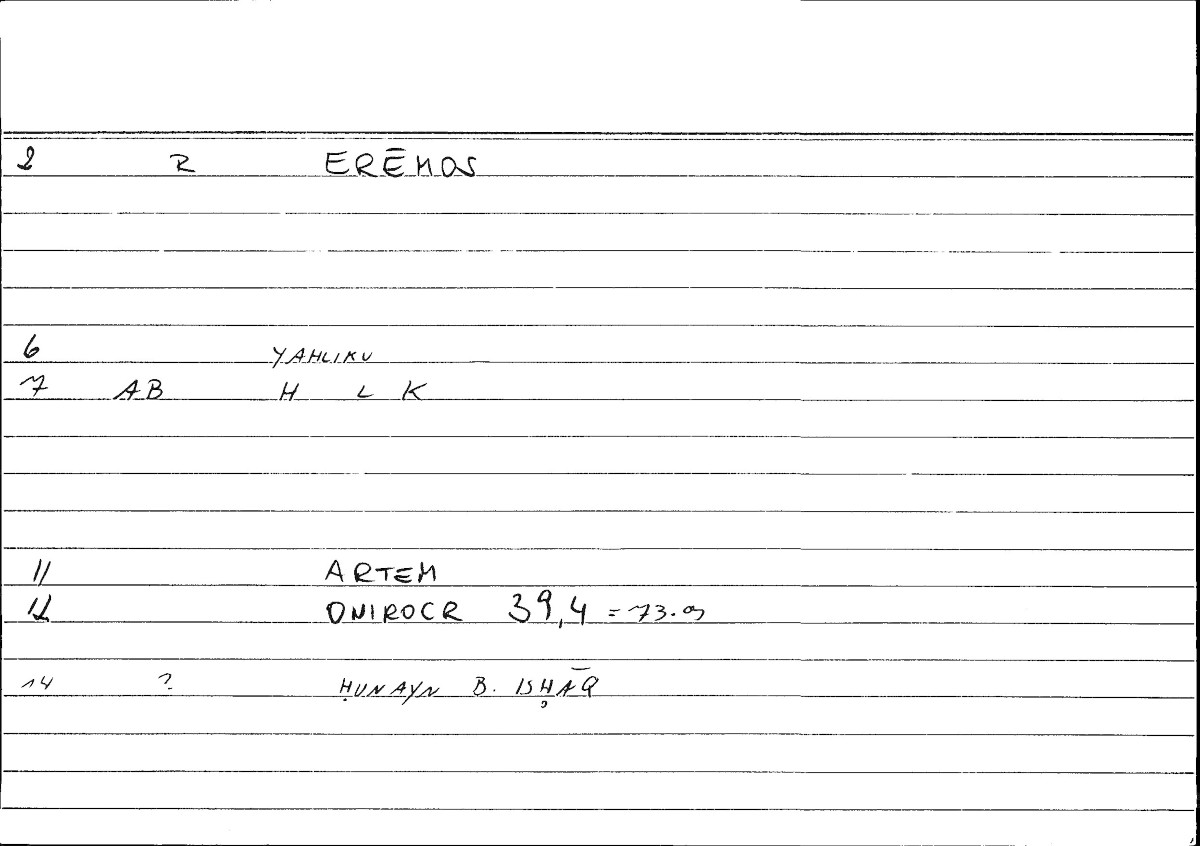 2 R ERĒMOS
6 YAHLIKU
7 AB H L K
11 ARTEM
12 ONIROCR 39,4 = 73.9
14 ? ḤUNAYN B. ISḤĀQ